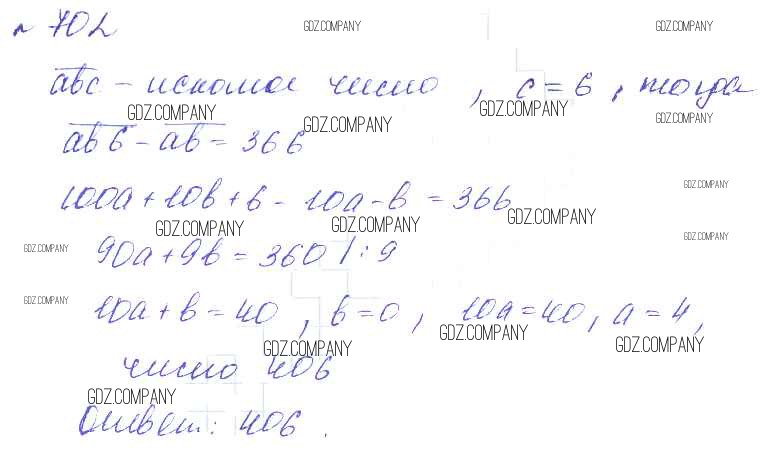 № 702 GDZ.COMPANY GDZ.COMPANY
abc – искомое число, c = 6, тогда
GDZ.COMPANY GDZ.COMPANY GDZ.COMPANY GDZ.COMPANY
ab6 – ab = 366
100a + 10b + 6 – 10a – b = 366 GDZ.COMPANY
GDZ.COMPANY GDZ.COMPANY GDZ.COMPANY GDZ.COMPANY
GDZ.COMPANY 90a + 9b = 360 / : 9
GDZ.COMPANY 10a + b = 40, b = 0, 10a = 40, a = 4,
GDZ.COMPANY GDZ.COMPANY GDZ.COMPANY
число 406
GDZ.COMPANY
Ответ: 406.